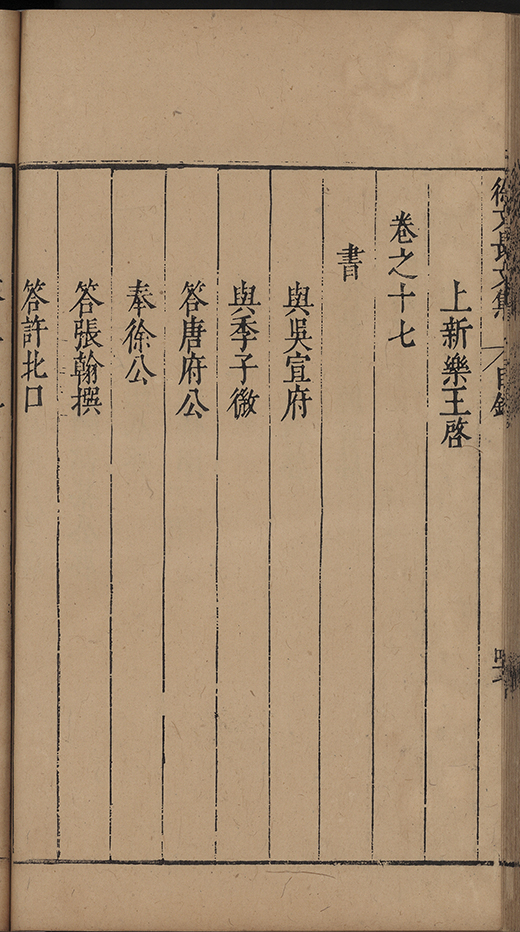 徐文長文集 目錄
上新樂王啓
卷之十七
書
與吳宣府
與季子微
答唐府公
奉徐公
答張翰撰
答許北口